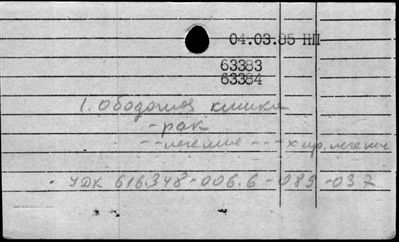 04.03.85 НП
63383
63384
1. Ободочная кишка
- рак
-- лечение --- хир. лечение
УДК 616.348-006.6-089-037